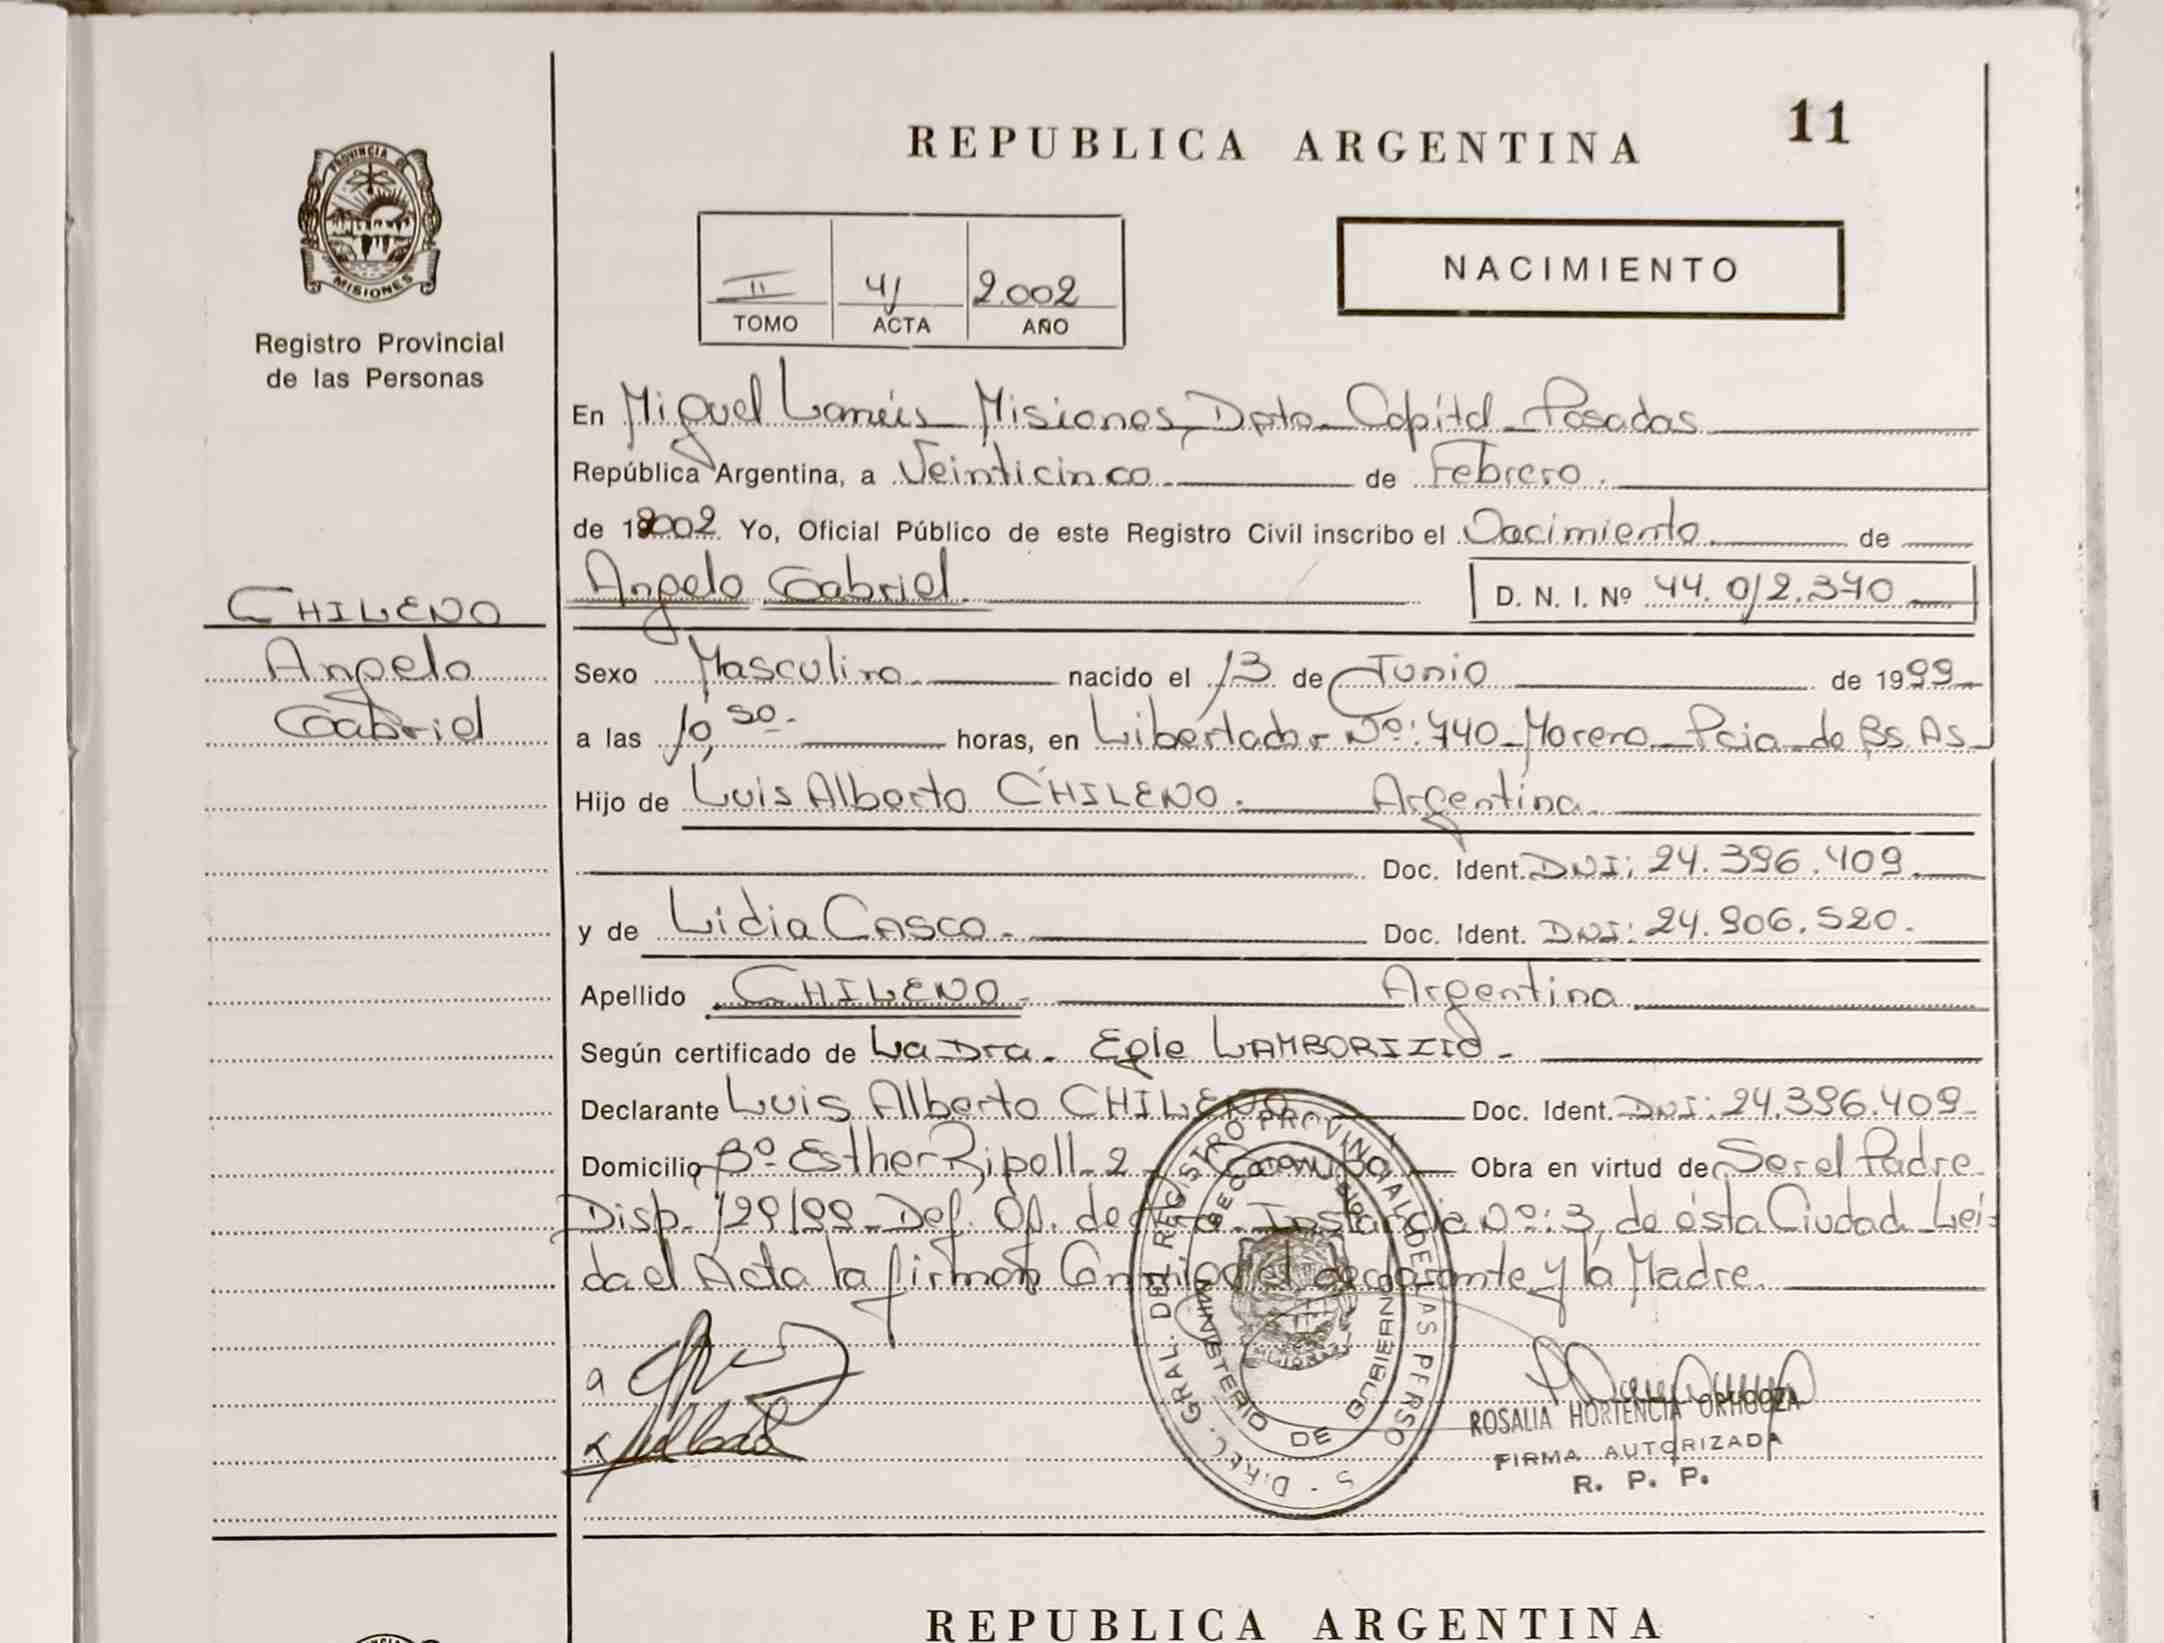 11
REPUBLICA ARGENTINA
PROVINCIA DE
MISIONES
Registro Provincial
de las Personas
NACIMIENTO
II 4 2.002
TOMO ACTA AÑO
En Miguel Lanús Misiones, Dpto Capital Posadas
República Argentina, a Veinticinco de Febrero.
de 2002 Yo, Oficial Público de este Registro Civil inscribo el Nacimiento de
Angelo Gabriel. D. N. I. Nº 44.012.370
CHILENO
Angelo
Gabriel
Sexo Masculino nacido el 13 de Junio de 1999
a las 10,50 horas, en Libertador Nº: 740 Moreno Pcia de Bs. As
Hijo de Luis Alberto CHILENO. Argentina.
Doc. Ident. DNI: 24.396.409.
y de Lidia CASCO. Doc. Ident. DNI: 24.906.520.
Apellido CHILENO Argentina
Según certificado de La Dra. Egle
Declarante Luis Alberto CHILENO Doc. Ident. DNI: 24.396.409
Domicilio Bº Esther Ripoll 2 Obra en virtud de Ser el Padre
Disp. 129/99 Def. Of. de Instancia Nº: 3, de ésta Ciudad Leí-
da el Acta la firman Conmigo el declarante y la Madre.
DIREC. GRAL. DEL REGISTRO PROVINCIAL DE LAS PERSONAS
MINISTERIO DE GOBIERNO
ROSALIA HORTENCIA ORHGOZA
FIRMA AUTORIZADA
R. P. P.
REPUBLICA ARGENTINA